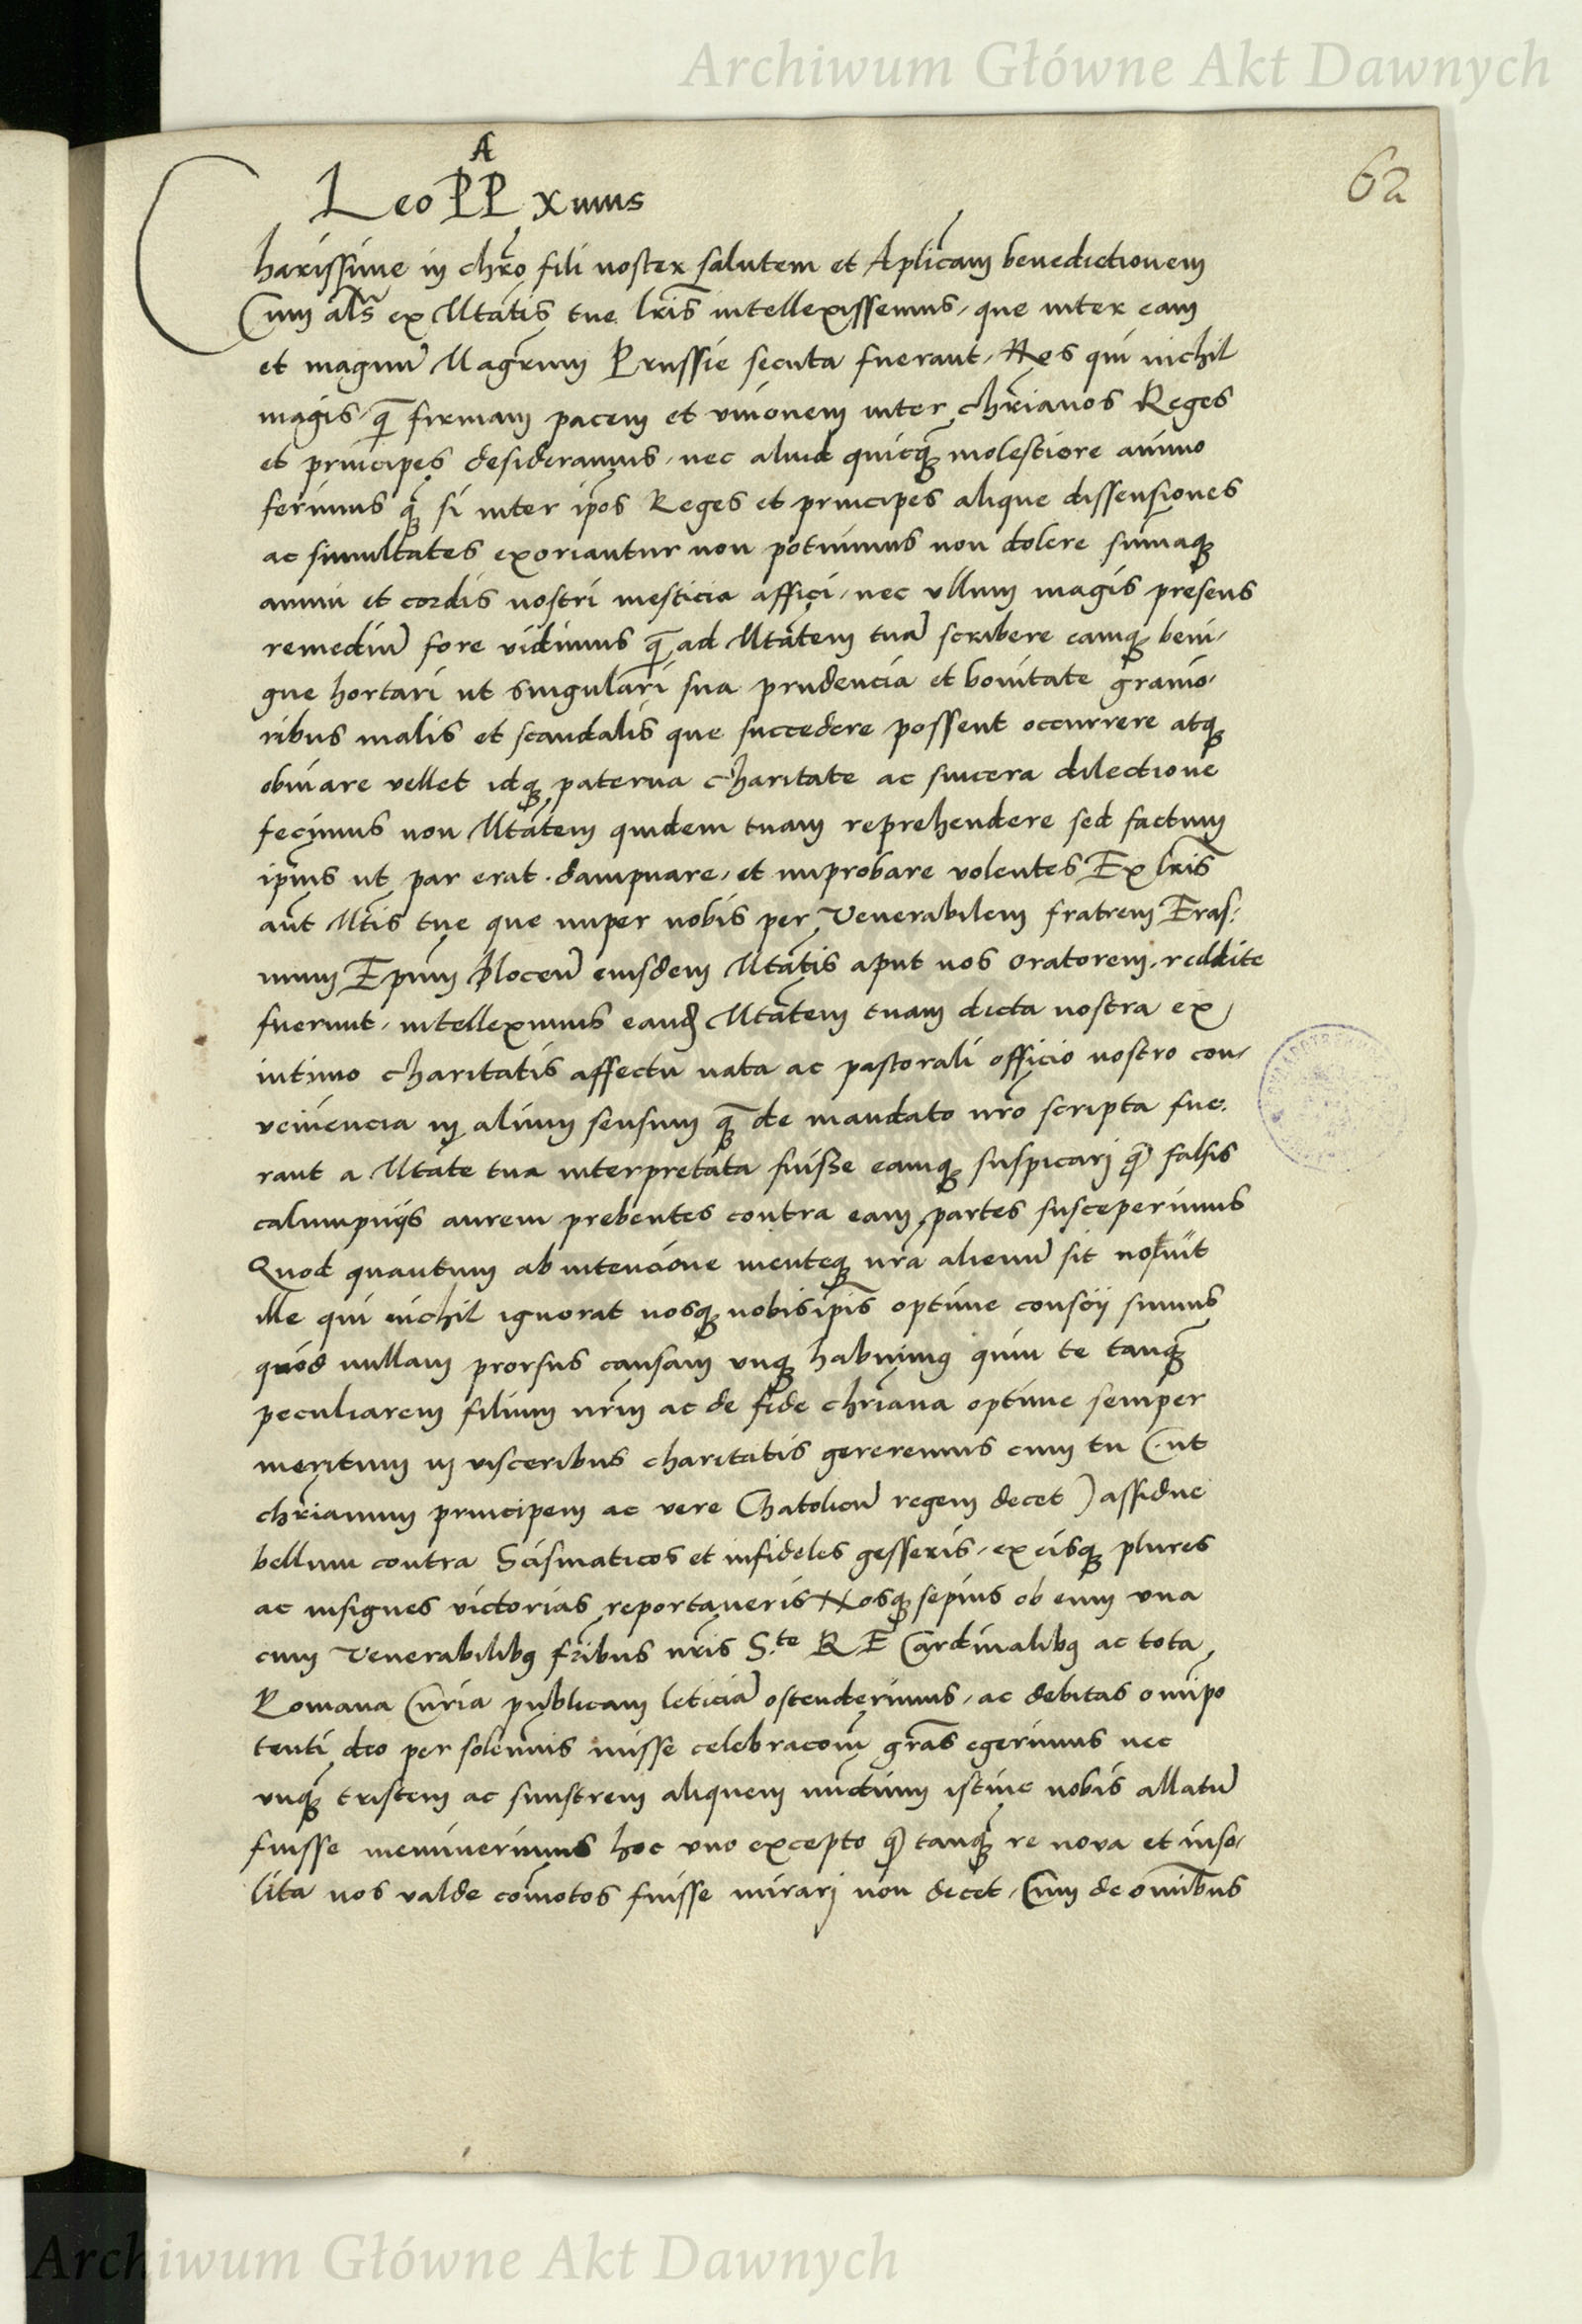 Archiwum Główne Akt Dawnych
62
A
Leo PP xmus
Charissime in chr̃o fili noster salutem et Aplicam benedictionem
Cum als̃ ex Mtatis tue lr̃is intellexissemus, que inter eam
et magnũ Magr̃um Prussie secuta fuerant, Nos qui nichil
magis, q̃ firmam pacem et unionem inter chr̃ianos Reges
et principes desideramus, nec aliud quicq̃ molestiore animo
ferimus q̃ si inter ip̃os Reges et principes alique dissensiones
ac simultates exoriantur non potuimus non dolere sum̃aq
animi et cordis nostri mesticia affici, nec ullum magis presens
remediũ fore vidimus q̃ ad Mtãtem tuã scribere eamq beni,
gne hortari ut singulari sua prudencia et bonitate gravio,
ribus malis et scandalis que succedere possent occurrere atq
obviare vellet idq paterna charitate ac sincera dilectione
fecimus non Mtãtem quidem tuam reprehendere sed factum
ip̃ius ut par erat. dampnare, et improbare volentes Ex lr̃is
aũt Mtis tue que nuper nobis per Venerabilem fratrem Eras:
mum Ep̃um Plocen̄ eiusdem Mtãtis aput nos oratorem, reddite
fuerunt, intelleximus eand Mtãtem tuam dicta nostra ex
intimo charitatis affectu nata ac pastorali officio nostro con,
veniencia in alium sensum q̃ de mandato nr̃o scripta fue,
rant a Mtãte tua interpretata fuisse eamq suspicari q falsis
calumpnijs aurem prebentes contra eam partes susceperimus
Quod quantum ab intencione menteq nr̃a alienũ sit novit
ille qui nichil ignorat nosq nobis ip̃is optime conscij sumus
quod nullam prorsus causam unq habuimus quin te tanq̃
peculiarem filium nr̃m ac de fide chr̃iana optime semper
meritum in visceribus charitatis gereremus cum tu (ut
chr̃ianum principem ac vere Chatolicũ regem decet) assidue
bellum contra Scismaticos et infideles gesseris, ex eisq plures
ac insignes victorias reportaveris Nosq sepius ob eum una
cum Venerabilibus fr̃ibus nr̃is S.te R E Cardinalibus ac tota
Romana Curia publicam leticiã ostenderimus, ac debitas om̃ipo
tenti deo per solemnis misse celebracoñi grãs egerimus nec
unq̃ tristem ac sinistrem aliquem nuctium istinc nobis allatũ
fuisse meminerimus hoc uno excepto q tanq̃ re nova et inso,
lita nos valde com̃otos fuisse mirari non decet, Cum de omñibus
Archiwum Główne Akt Dawnych